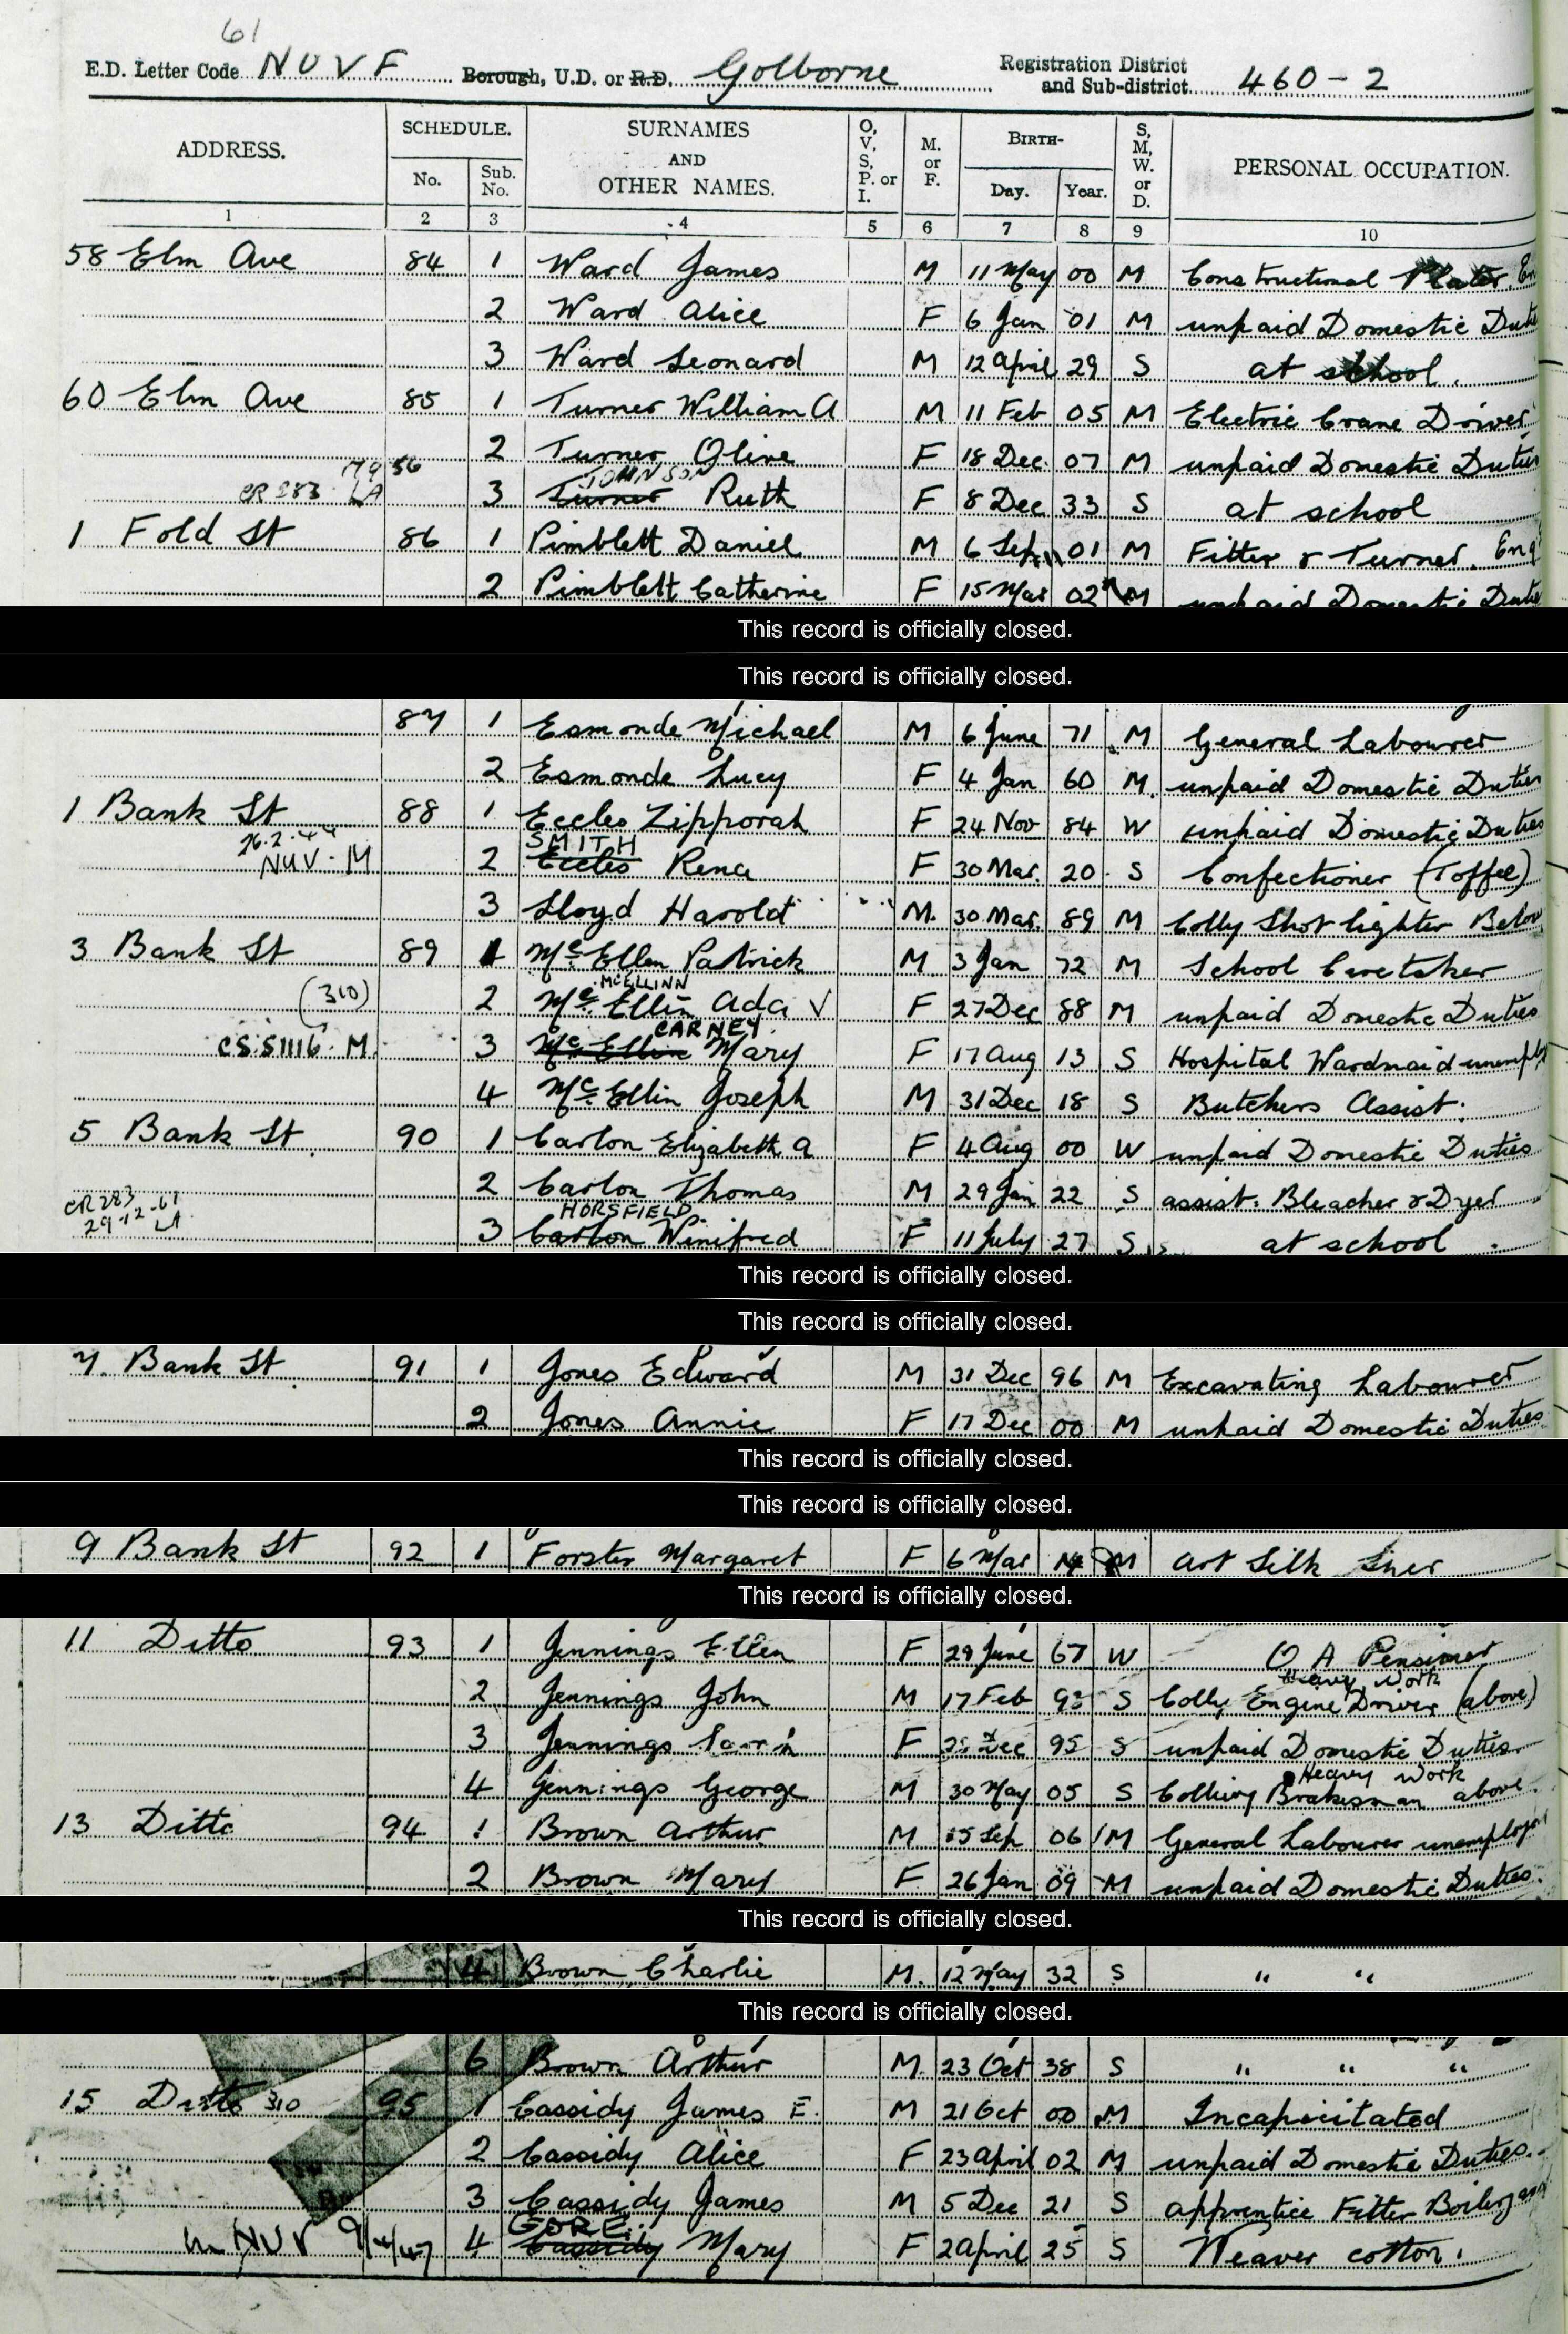 61
E.D. Letter Code NUVF Borough, U.D. or R.D. Golborne Registration District and Sub-district 460-2
ADDRESS. SCHEDULE. No. Sub. No. SURNAMES AND OTHER NAMES. O, V, S, P. or I. M. or F. BIRTH- Day. Year. S, M, W. or D. PERSONAL OCCUPATION.
1 2 3 4 5 6 7 8 9 10
58 Elm Ave 84 1 Ward James M 11 May 00 M Constructional Plater En
2 Ward Alice F 6 Jan 01 M unpaid Domestic Duties
3 Ward Leonard M 12 April 29 S at school.
60 Elm Ave 85 1 Turner William A M 11 Feb 05 M Electric Crane Driver
2 Turner Olive F 18 Dec 07 M unpaid Domestic Duties
56 JOHNSON
CR 283 LA 3 Turner Ruth F 8 Dec 33 S at school
1 Fold St 86 1 Pimblett Daniel M 6 Sep 01 M Fitter & Turner. Eng
2 Pimblett Catherine F 15 Mar 02 M unpaid Domestic Duties
This record is officially closed.
This record is officially closed.
87 1 Esmonde Michael M 6 June 71 M General Labourer
2 Esmonde Lucy F 4 Jan 60 M unpaid Domestic Duties
1 Bank St 88 1 Eccles Zipporah F 24 Nov 84 W unpaid Domestic Duties
26.2.44 SMITH
NUV. M 2 Eccles Rena F 30 Mar. 20 S Confectioner (Toffee)
3 Lloyd Harold M. 30 Mar. 89 M Colly Shot lighter Below
3 Bank St 89 1 Mc Ellen Patrick M 3 Jan 72 M School Caretaker
MCELLINN
(310) 2 Mc Ellin Ada V F 27 Dec 88 M unpaid Domestic Duties
CARNEY.
CS 51116 M. 3 Mc Ellin Mary F 17 Aug 13 S Hospital Wardmaid unemplo
4 Mc Ellin Joseph M 31 Dec 18 S Butchers Assist.
5 Bank St 90 1 Carlon Elizabeth A F 4 Aug 00 W unpaid Domestic Duties
2 Carlon Thomas M 29 Jan 22 S assist. Bleacher & Dyer
CR 283 HORSFIELD
29-12-61 LA 3 Carlon Winifred F 11 July 27 S at school
This record is officially closed.
This record is officially closed.
7. Bank St 91 1 Jones Edward M 31 Dec 96 M Excavating Labourer
2 Jones Annie F 17 Dec 00 M unpaid Domestic Duties
This record is officially closed.
This record is officially closed.
9 Bank St 92 1 Forster Margaret F 6 Mar 14 M Art Silk
This record is officially closed.
11 Ditto 93 1 Jennings Ellen F 29 June 67 W O A Pensioner
Heavy Work
2 Jennings John M 17 Feb 93 S Colly Engine Driver (above)
3 Jennings F Dec 95 S unpaid Domestic Duties
Heavy Work
4 Jennings George M 30 May 05 S Colliery Brakesman above.
13 Ditto 94 1 Brown Arthur M 15 Sep 06 M General Labourer unemployed
2 Brown Mary F 26 Jan 09 M unpaid Domestic Duties.
This record is officially closed.
4 Brown Charlie M. 12 May 32 S " "
This record is officially closed.
6 Brown Arthur M. 23 Oct 38 S " " "
15 Ditto 310 95 1 Cassidy James E. M 21 Oct 00 M Incapacitated
2 Cassidy Alice F 23 April 02 M unpaid Domestic Duties.
3 Cassidy James M 5 Dec 21 S apprentice Fitter Boiler
GORE
NUV 4 Cassidy Mary F 2 April 25 S Weaver cotton.